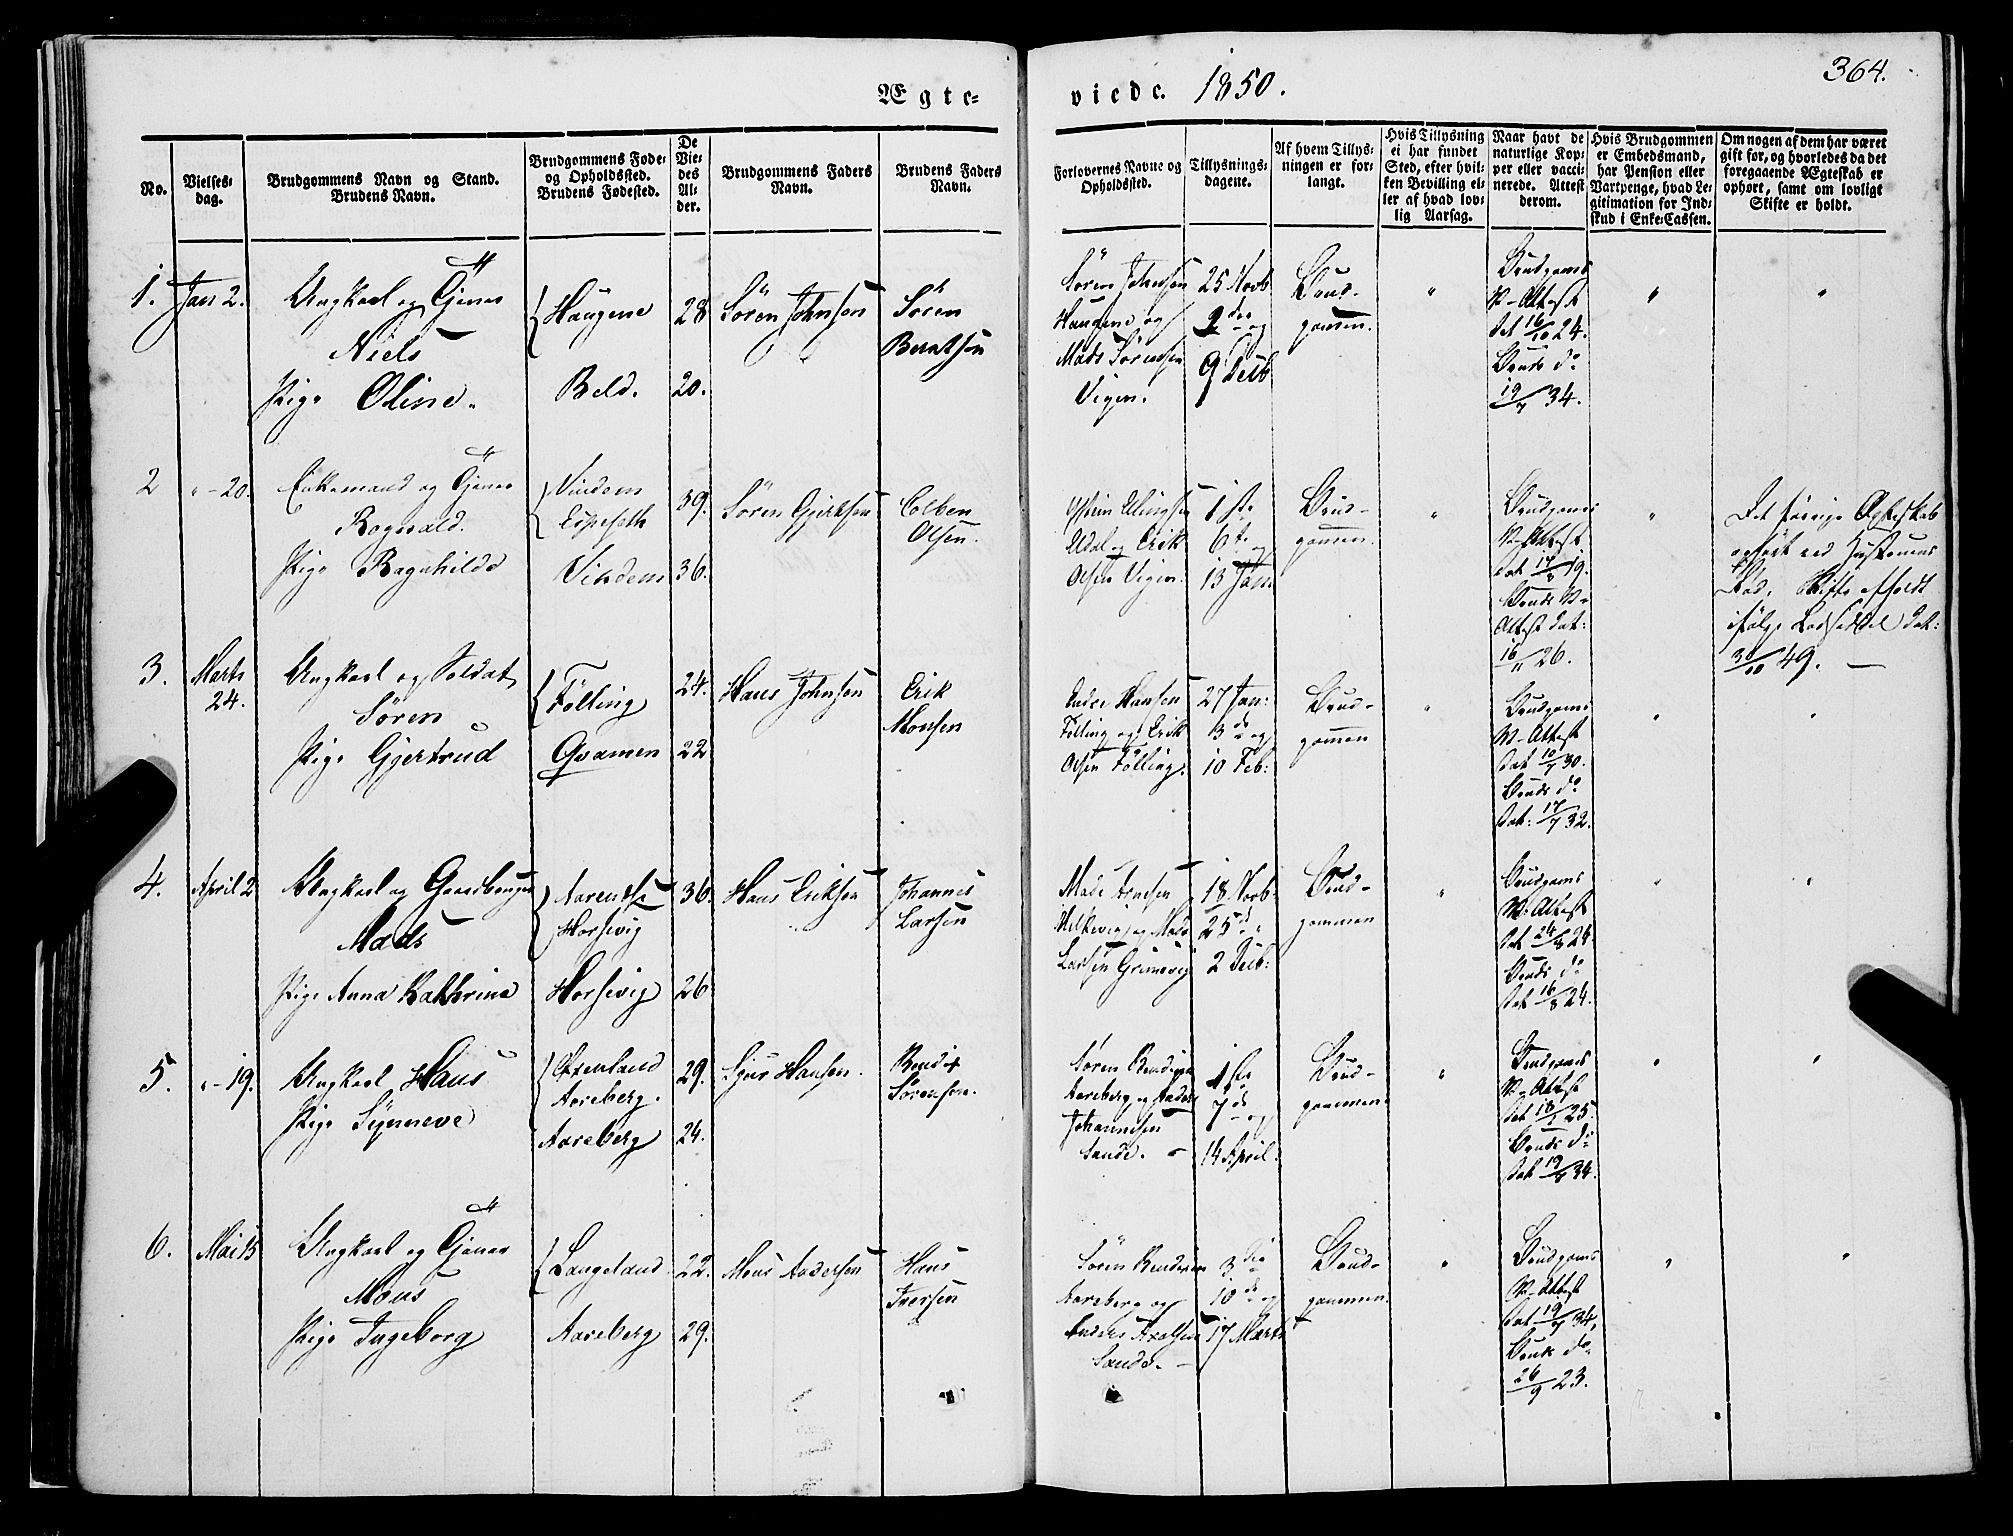 364.
Ægte-
viede. 1850.
No.
Vielses-
dag.
Brudgommens Navn og Stand.
Brudens Navn.
Brudgommens Føde-
og Opholdssted.
Brudens Fødested.
De
Vie-
des
Al-
der.
Brudgommens Faders
Navn.
Brudens Faders
Navn.
Forlovernes Navne og
Opholdssted.
Tillysnings-
dagene.
Af hvem Tillys-
ningen er for-
langt.
Hvis Tillysning
ei har fundet
Sted, efter hvil-
ken Bevilling el-
ler af hvad lov-
lig Aarsag.
Naar havt de
naturlige Kop-
per eller vacci-
nerede. Attest
derom.
Hvis Brudgommen
er Embedsmand,
har Pension eller
Vartpenge, hvad Le-
gitimation for Ind-
skud i Enke-Cassen.
Om nogen af dem har været
gift før, og hvorledes da det
foregaaende Ægteskab er
ophørt, samt om lovligt
Skifte er holdt.
1. Jan 2.
Ungkarl og Tjener
Niels
Pige Oline.
Haugene
Beld.
28
20.
Sören Johnsen
Sören
Berntsen
Sören Johnsen
Haugene og
Mads Sörensen
Vigen.
25 Novb
2den og
9 Decb
Brud-
gommen.
"
Brudgoms
V-Attest
dat 16/10 24.
Bruds do
19/7 34.
"
"
2 "-20.
Enkemand og Tjener
Rognald.
Pige Ragnhilde
Vindem
Espeseth
Vindem
39.
36.
Sören Gjertsen
Colben
Olsen.
Ellingsen
og Erik
Olsen Vigen.
1ste
6te og
13 Jan
Brud-
gommen.
"
Brudgoms
V-Attest
dat 17/8 19.
Bruds V-
Attest dat:
16/11 26.
"
Det forrige Ægteskab
ophört ved Hustruens
Död, Skifte afholdt
ifölge Ladseddel dat:
30/10 49. —
3. Marts
24.
Ungkarl og Soldat
Sören
Pige Gjertrud
Fölling
Qvamen
24.
22
Hans Johnsen
Erik
Monsen
Andre Hansen
Fölling og Erik
Olsen Fölling.
27 Jan:
3de og
10 Feb:
Brud-
gommen
"
Brudgoms
V-Attest
dat 10/7 30.
Bruds do
dat: 17/7 32.
"
"
4. April 2
Ungkarl og Gaardbruger
Mads
Pige Anna Kathrine
Horsevig
Horsevig
36.
26
Hans Eriksen
Johannes
Larsen
Mads Arnesen
og Mads
Larsen Grimevig
18 Novb:
25de "
2 Decb:
Brud-
gommen
"
Brudgoms
V-Attest
dat 24/8 24
Bruds do
dat 16/8 24.
"
"
5. "-19.
Ungkarl Hans
Pige Synneve
Aareberg.
Aareberg
29.
24.
Sjur Hansen.
Bendix
Sörensen.
Sören Bendixen
Aareberg og Anders
Johannesen
Sande. -
1ste
7de og
14 April.
Brud-
gommen
"
Brudgoms
V-Attest
dat 18/7 25.
Bruds do
dat 19/7 34.
"
"
6. Mai 15
Ungkarl og Tjener
Mons
Pige Ingeborg
Langeland
Aareberg
22.
29.
Mons Andersen
Hans
Iversen
Sören Bendixen
Aareberg og
Anders
Sande. -
3die
10de og
17 Marts
Brud-
gommen.
"
Brudgoms
V-Attest
dat 19/7 34,
Bruds do
26/9 23.
"
"